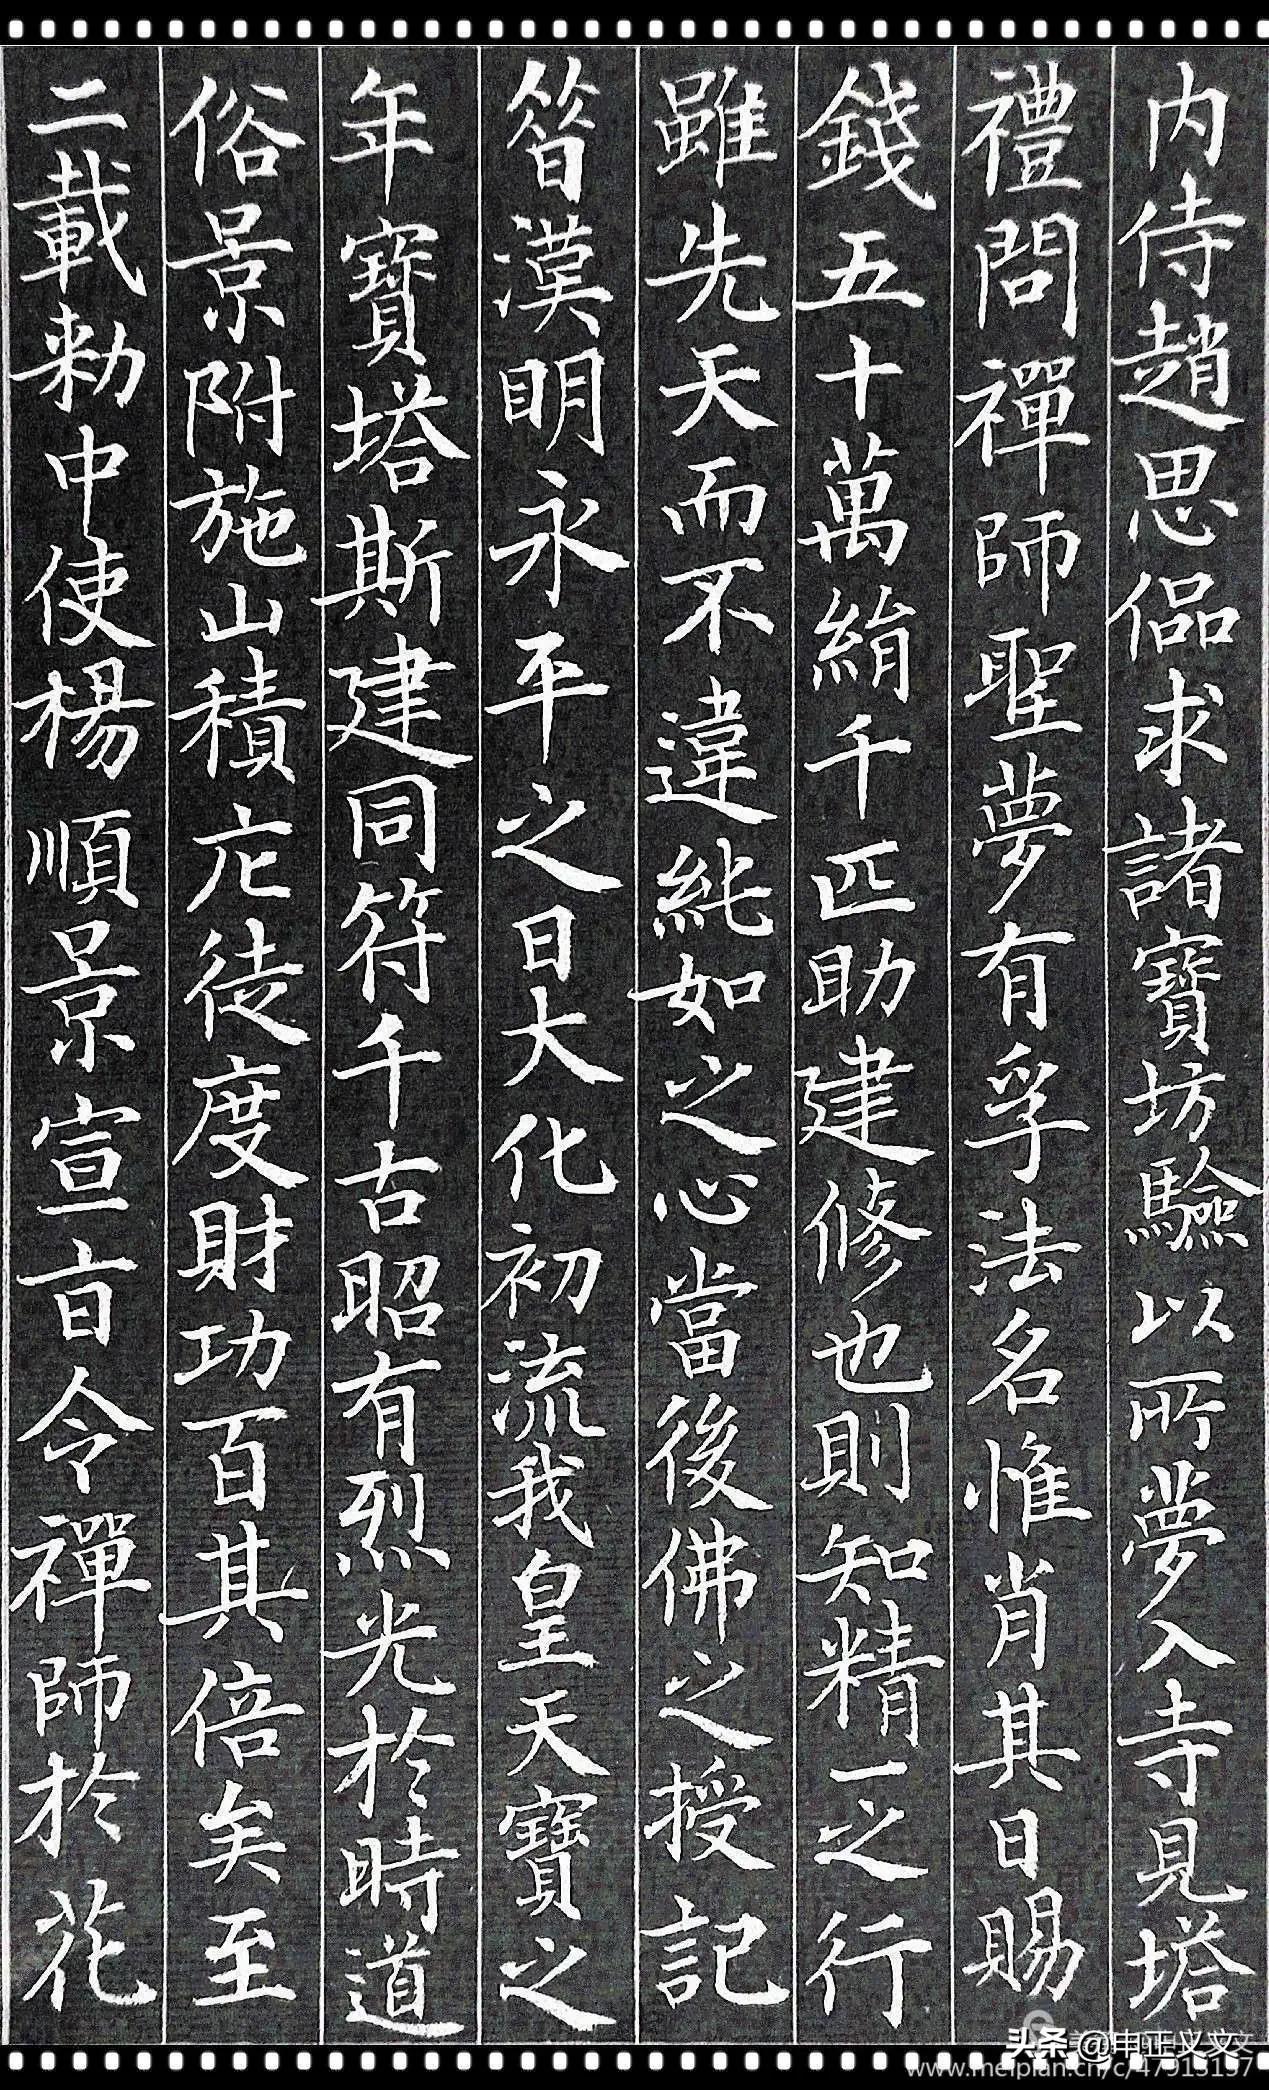 内侍趙思偘求諸寶坊驗以所夢入寺見塔
禮問禪師聖夢有孚法名惟肖其日賜
錢五十萬絹千匹助建修也則知精一之行
雖先天而不違純如之心當後佛之授記
昔漢明永平之日大化初流我皇天寶之
年寶塔斯建同符千古昭有烈光於時道
俗景附施山積庀徒度財功百其倍矣至
二載勑中使楊順景宣旨令禪師於花
头条@申正义文
www.meipian.cn/c/47913157